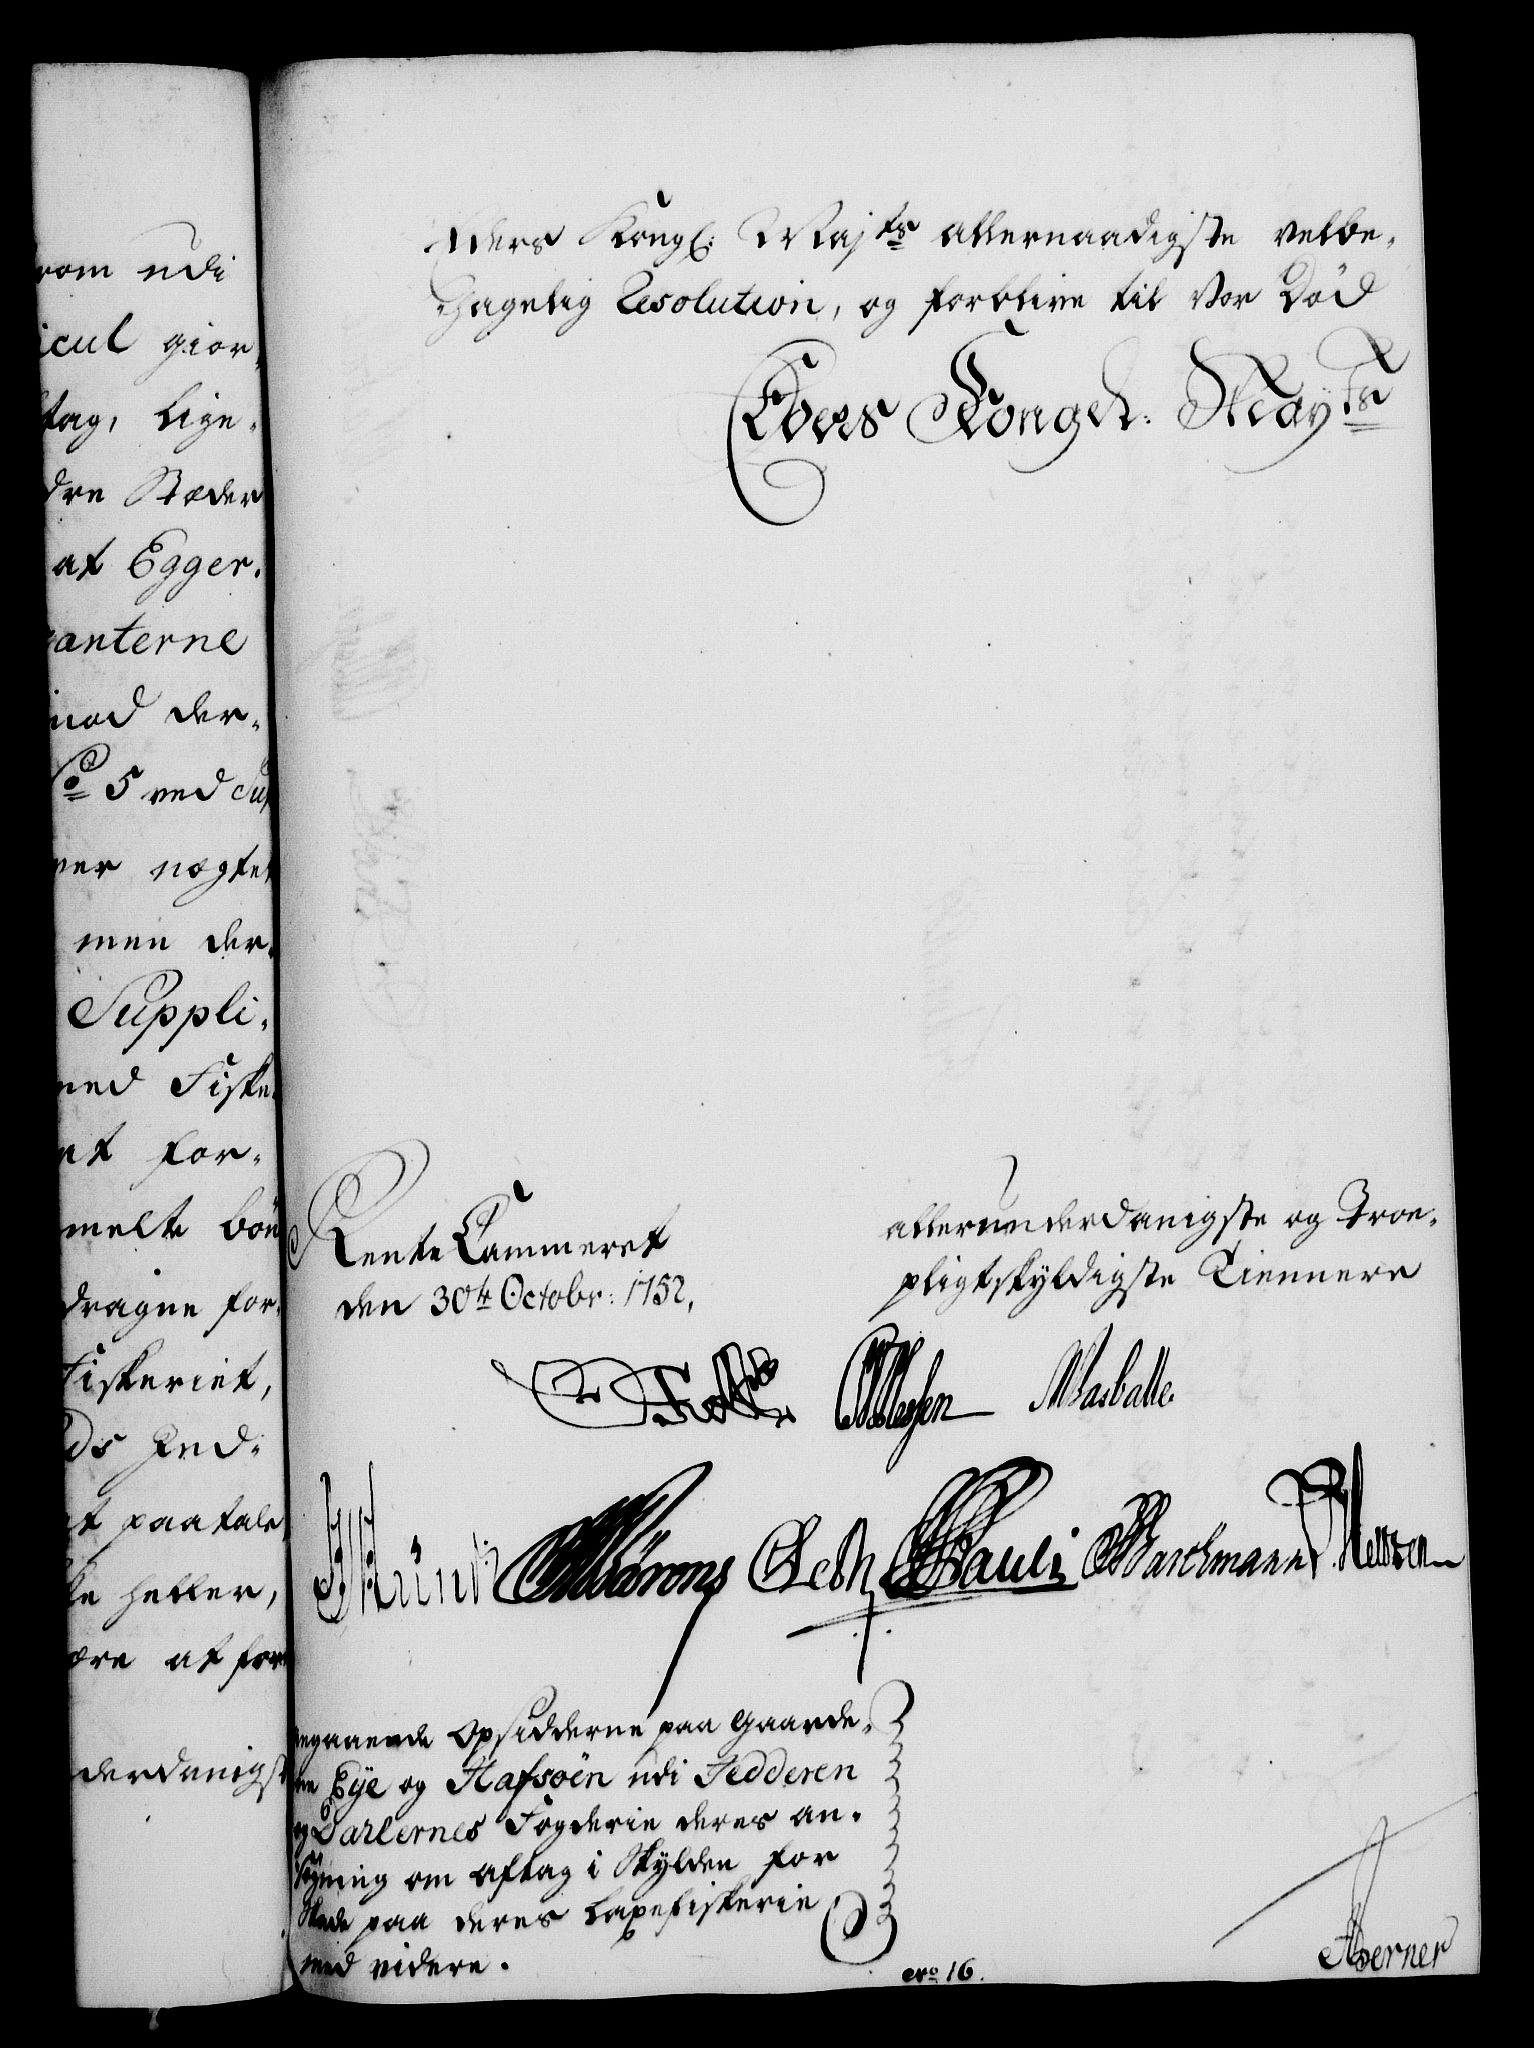 rom udi
icul gior-
tag, lige-
dre Stæder
at Egger-
anterne
imod der-
No 5 ved Su
ver nægter
men der-
Suppli-
med Fiske
et for-
melte bön
dragne for-
Fiskeriet,
ds Ind-
at paatale
ke heller,
ære at for
derdanigst
Eders Kongl: Majts allernaadigste velbe-
hagelig Resolution, og forblive til vor Död
Eders Kongel: Mayts
Rente Cammeret
den 30te Octobr: 1752,
allerunderdanigste og Troe-
pligtskyldigste Tiennere
Masballe
Pauli Barchmann
egaaende Opsidderne paa Gaarde-
ne Eye og Hafsöen udi Jedderen
og Darlernes Fogderie deres an-
søgning om aftag i Skylden for
Skade paa deres Laxefiskerie
med videre.
No 16.